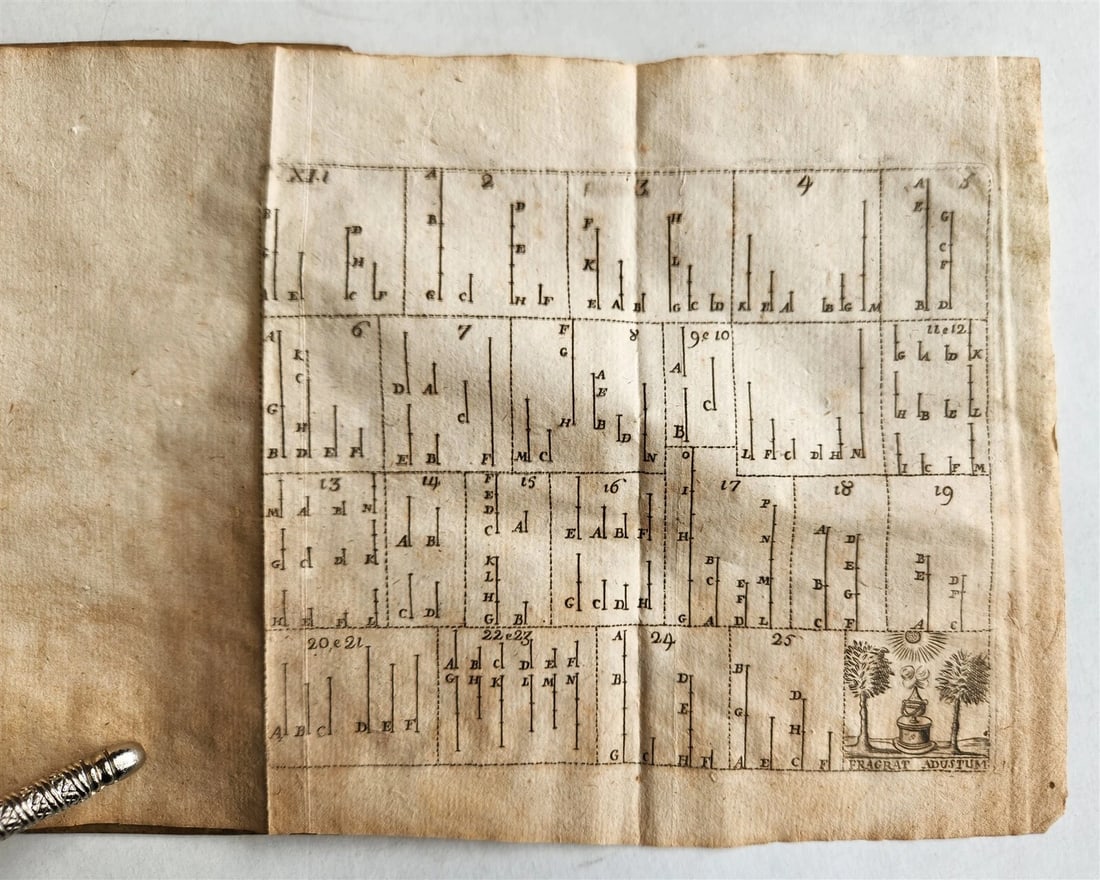 XI.1 2 3 4 5
A A
D D E
B F H G
D E C
H K L F
E C F G C H F E A B G C D K E A B G M B D
6 7 F 8 9 e 10 11 e 12
A K G G A D K
C D A A A
G E C C H B E L
H H B D
B D E F E B F M C N B L F C D H N I C F M
13 14 F 15 16 O 17 18 19
M A B N E I P
D
A B C A E A B F H N A D B
G C D K K B E E D
L C E M B G F
H E F L C D H G C D H F
G B G A D L C F A C
20 e 21 22 e 23 A 24 25
A B C D E F B
G H K L M N B D
E G D
H
A B C D E F G C H F A E C F
FRAGRAT ADUSTUM